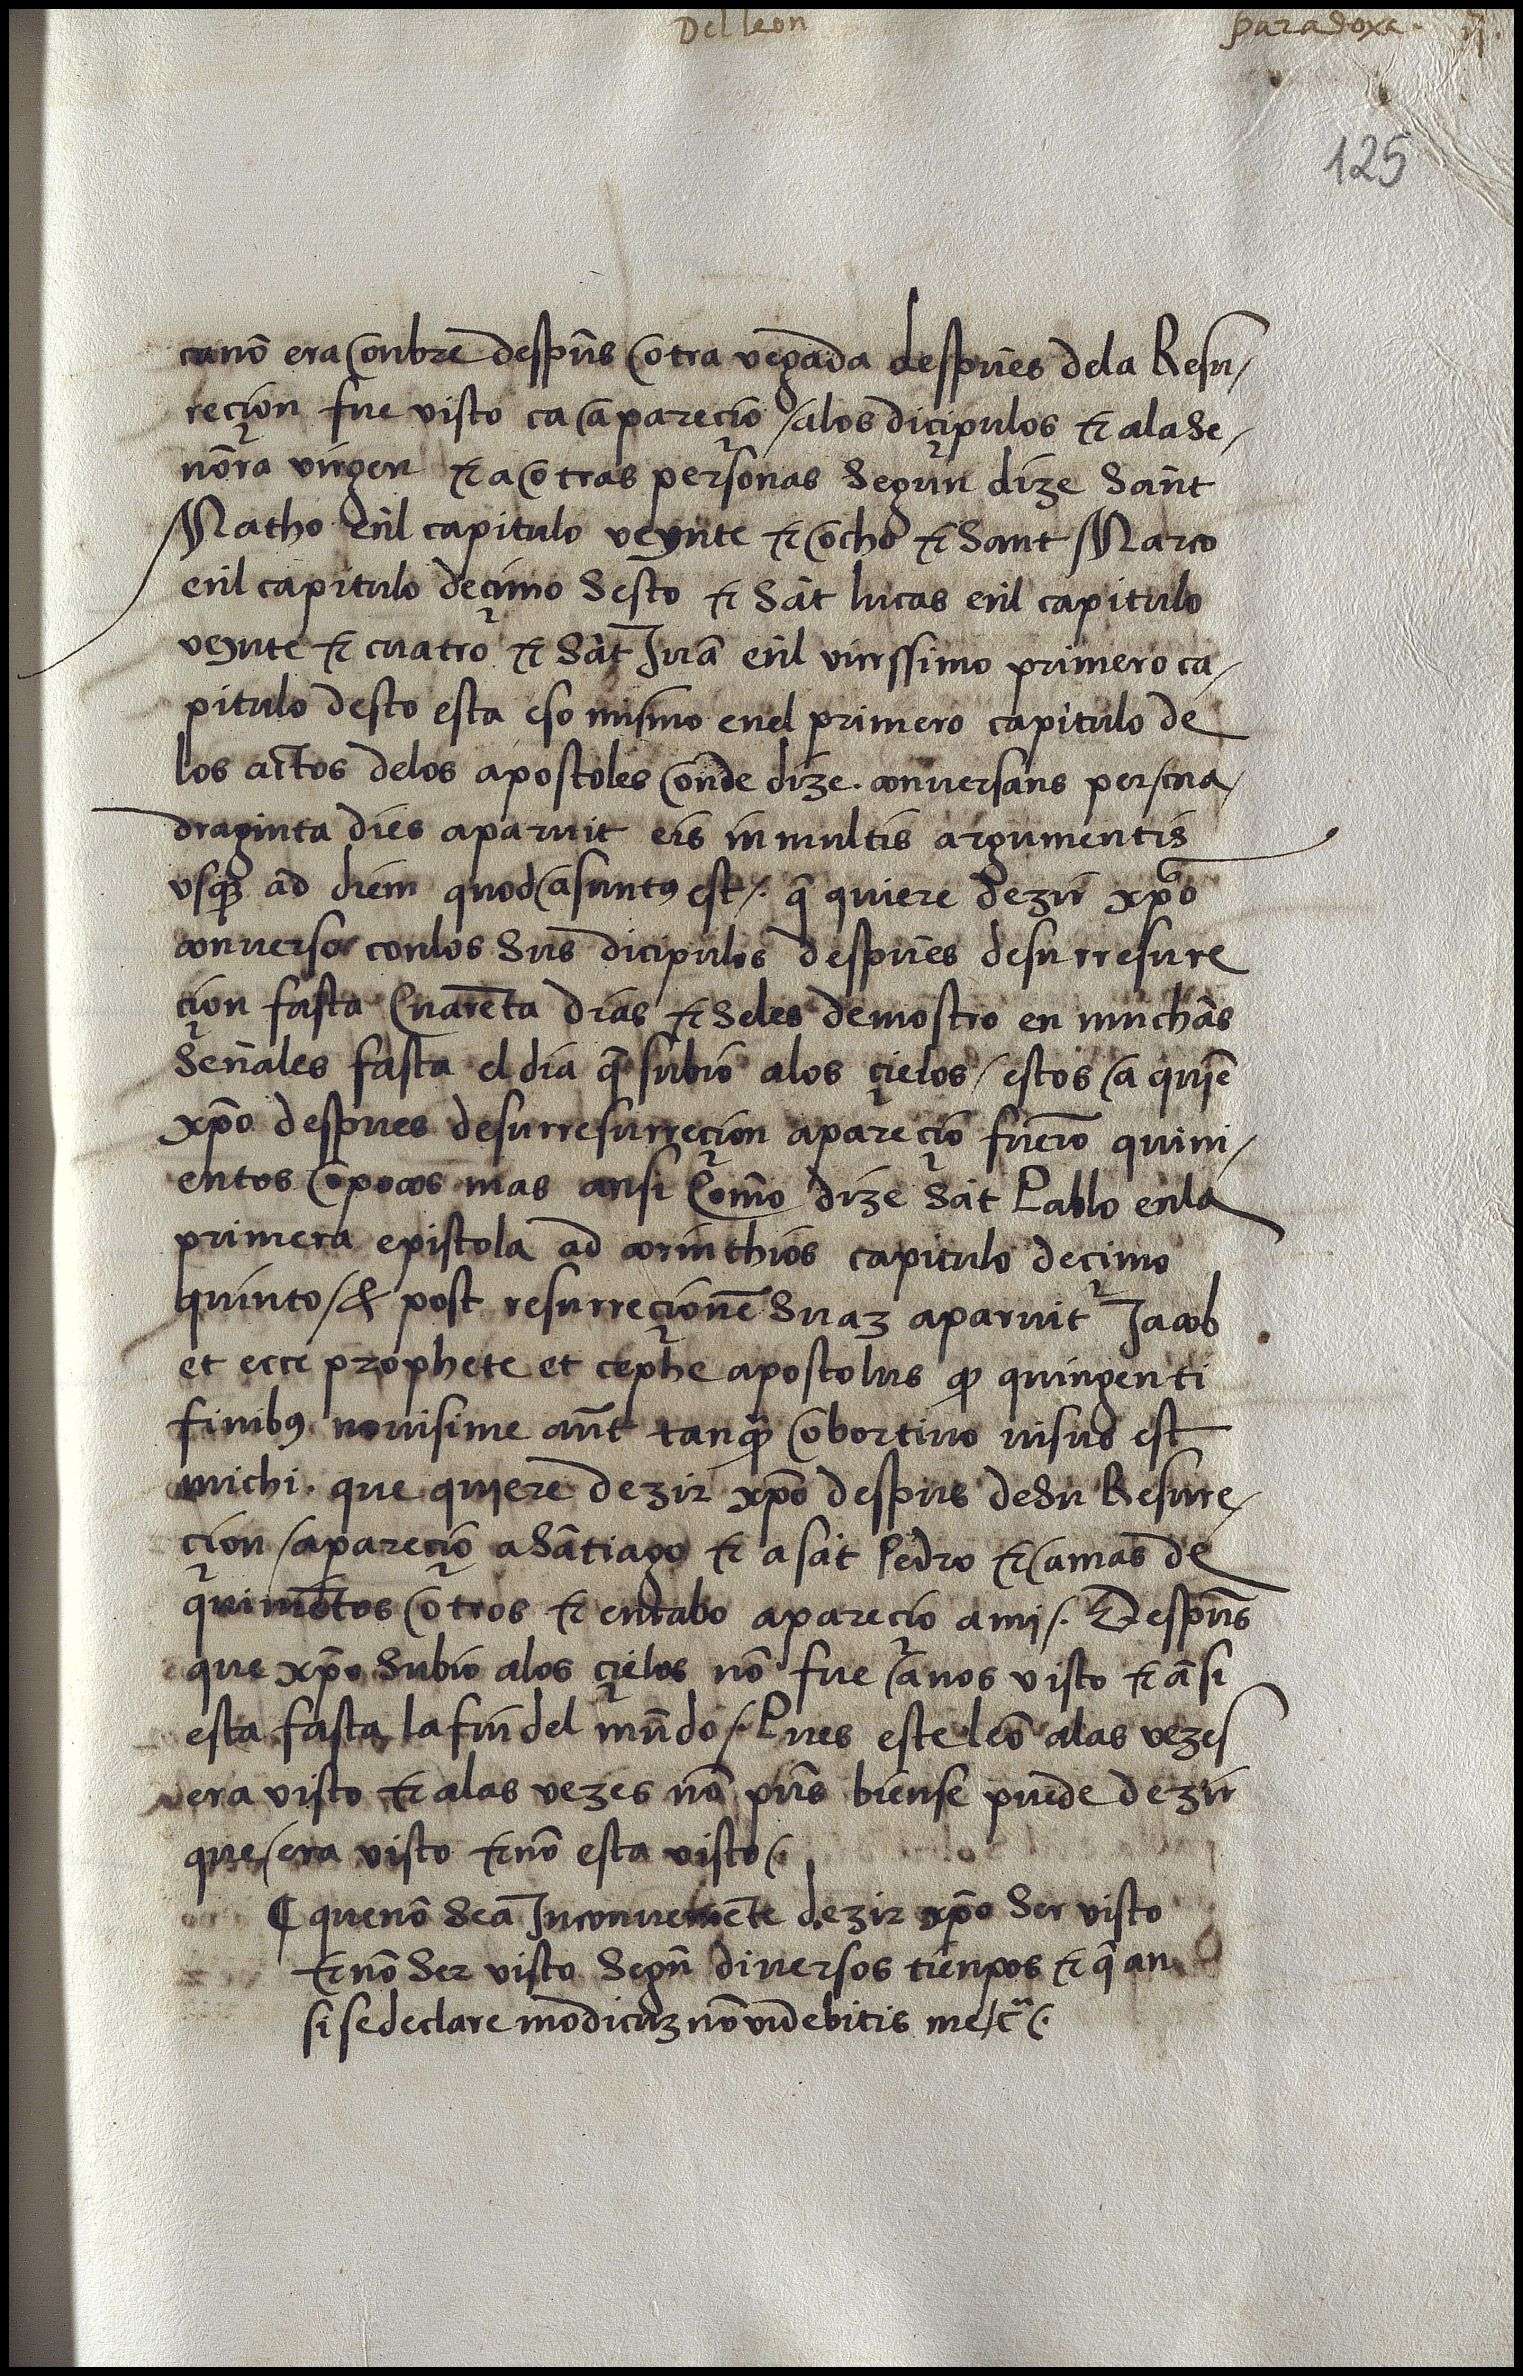 Del leon
paradoxa. ij.
125
ca nõ era onbre despũs otra vegada despues dela Resu/
reçion fue visto ca apareçio / alos diçipulos & ala se/
nõra virgen & a otras personas segun dize sant
Matho enl capitulo veynte & ocho & sant Marco
enl capitulo deçimo sesto & sãt lucas enl capitulo
veynte & cuatro & sãt Juã enl virssimo primero ca/
pitulo desto esta eso mismo enel primero capitulo de
los actos delos apostoles onde dize. conuersans per cua/
draginta dies aparuit eis in multis argumentis
vsqꝫ ad diem quod asuntꝰ est /. q̃ quiere dezir xp̃o
conuerso conlos sus dicipulos despues desu rresure
çion fasta Cuarẽta dias & seles demostro en muchas
señales fasta el dia q̃ subio alos çielos / estos a quiẽ
xp̃o despues desu rresurreçion apareçio fuerõ quini/
entos o pocos mas ansi Como dize sãt Pablo enla
primera epistola ad corinthios capitulo deçimo
quinto / & post resurreçionẽ suaz aparuit Jacob
et ecce prophete et cephe apostolus qꝫ quingenti
finibꝰ nouisime aut̃ tanqꝫ obortiuo uisus est
michi. que quiere dezir xp̃o despus desu Resure/
çion / apareçio a Sãtiago & a sãt Pedro & a mas de
quiniẽtos otros & en cabo apareçio a mi /. Despũs
que xp̃o subio alos çielos nõ fue a nos visto & ãsi
esta fasta la fin del mũdo /. Pues este leõ alas vezes
era visto & alas vezes nõ pũs biense puede dezir
que era visto & nõ esta visto /.
¶ que nõ sea Inconueniẽte dezir xp̃o ser visto
& nõ ser visto segũ diuersos tienpos & q̃ an
si se declare modicuz nõ videbitis me /c̃ /.